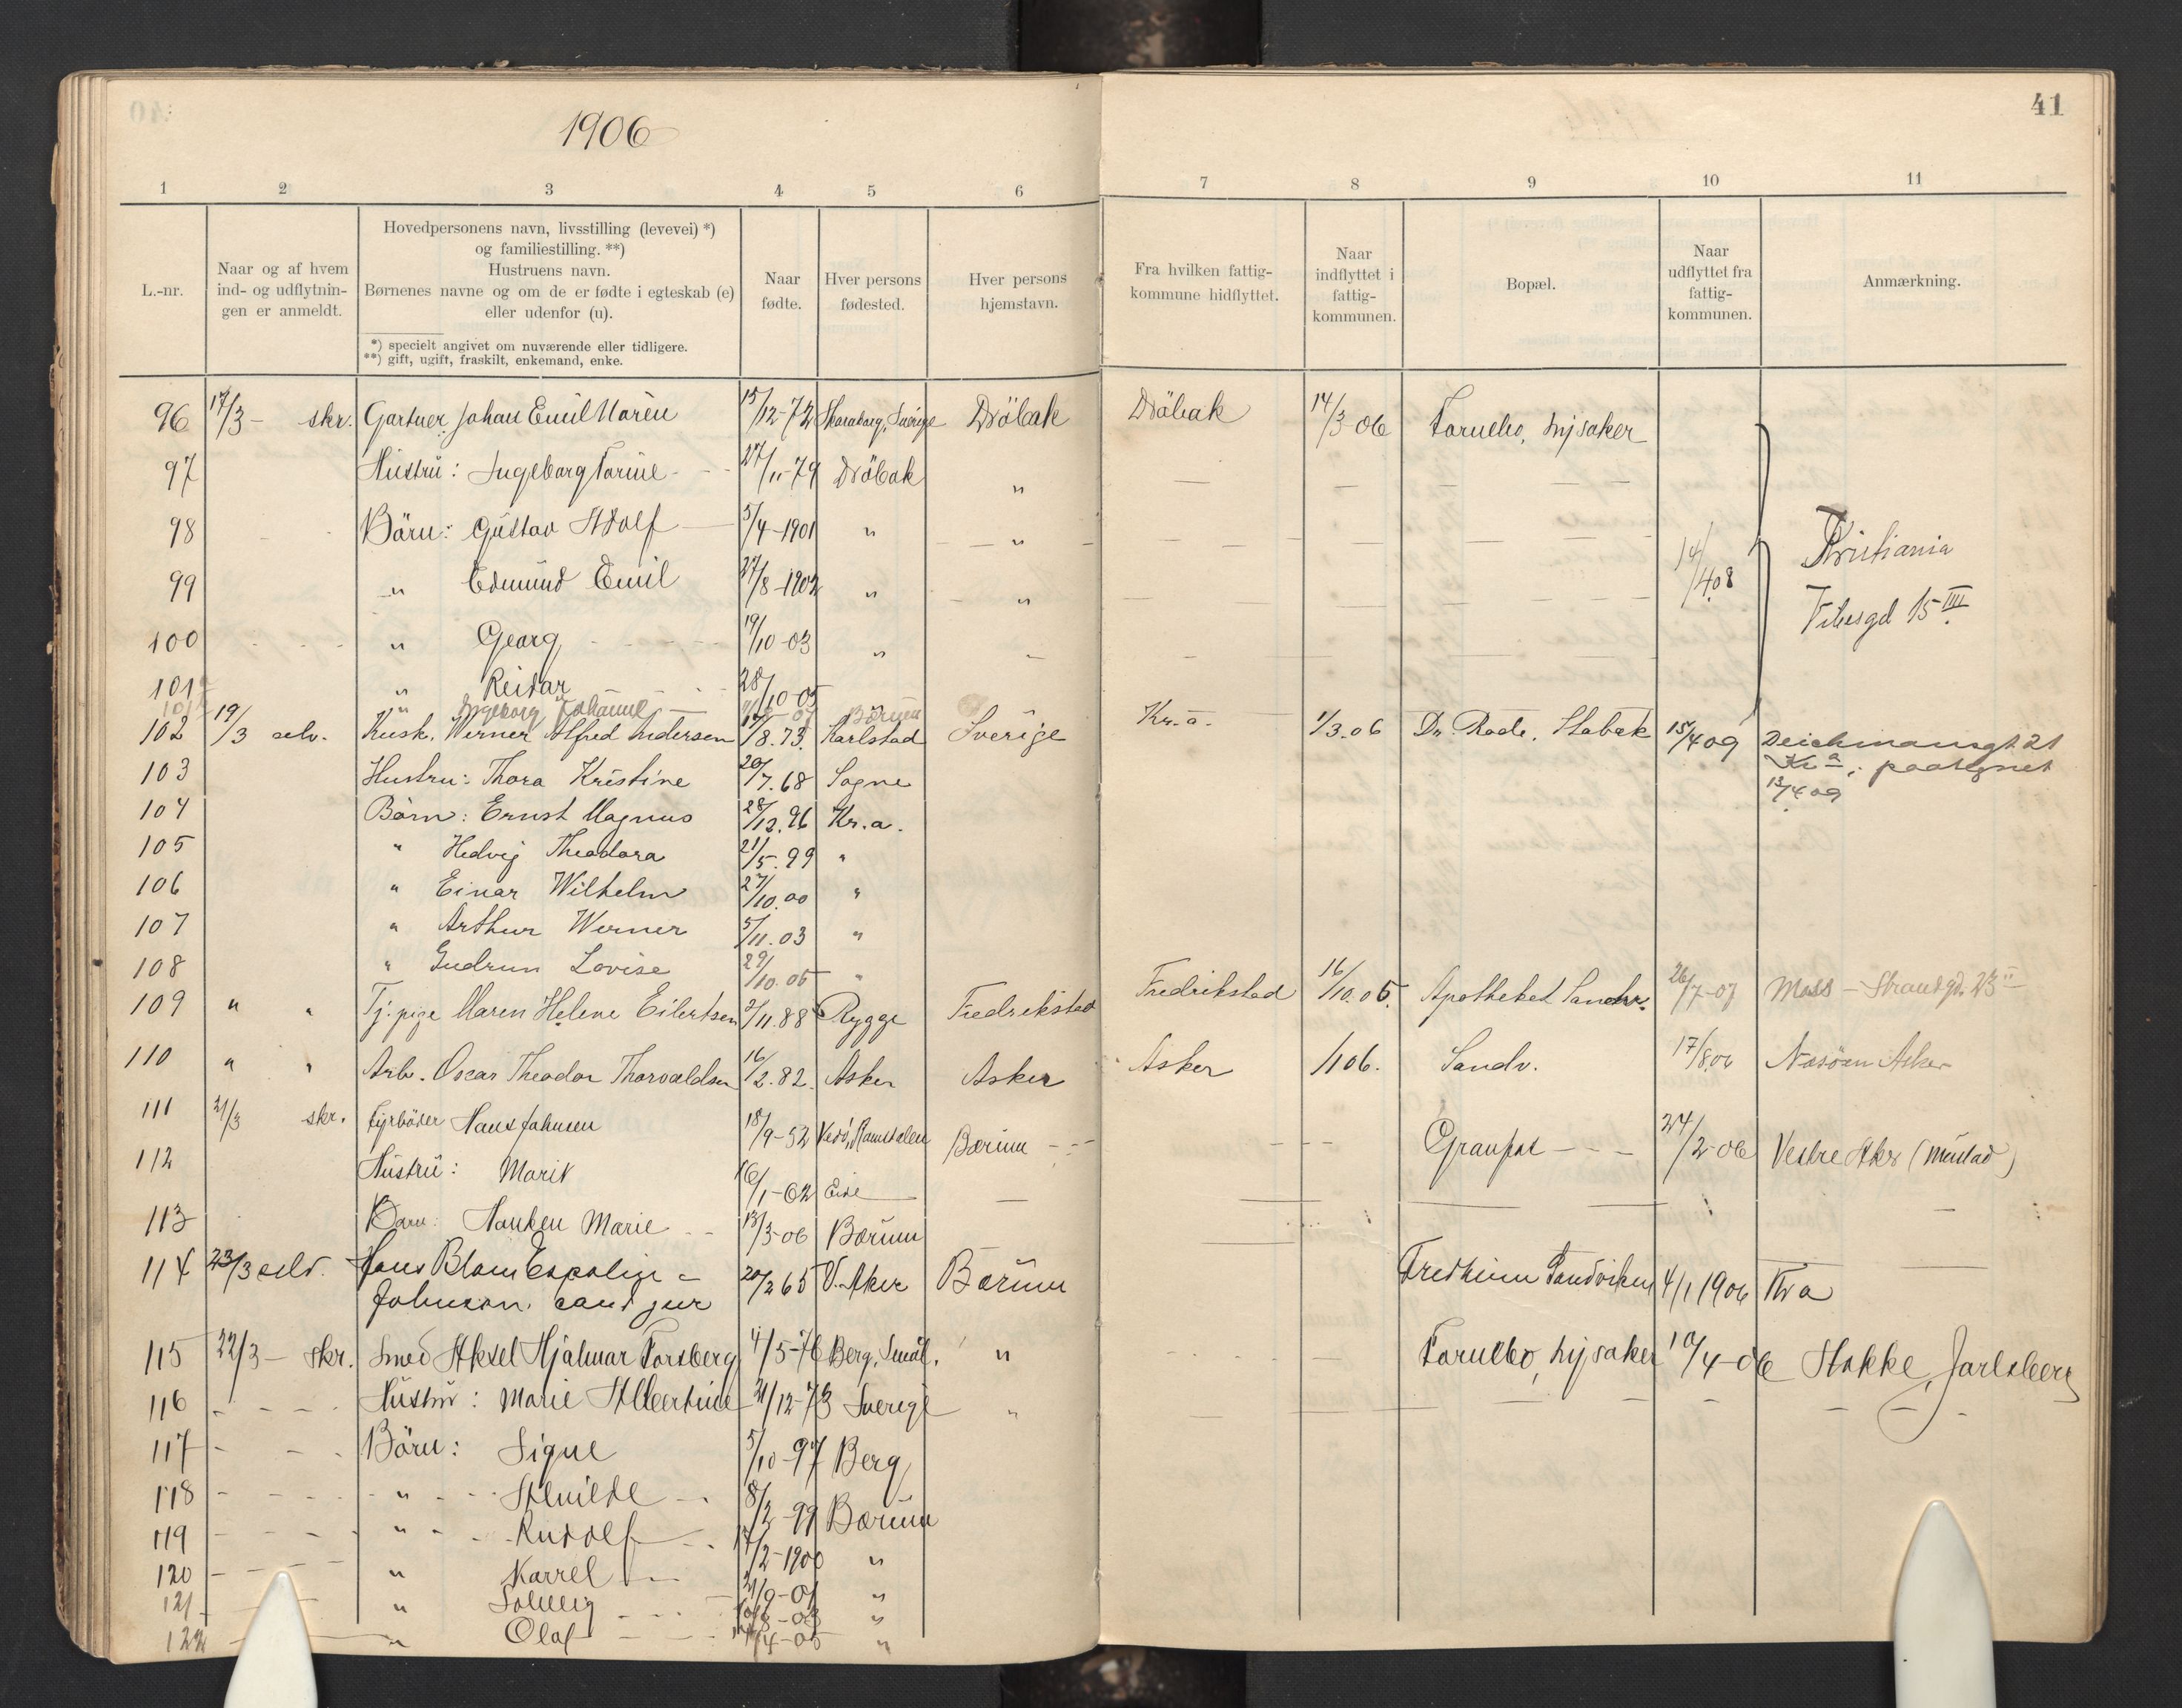 1906
41
1 2 3 4 5 6 7 8 9 10 11
L.-nr.
Naar og af hvem
ind- og udflytnin-
gen er anmeldt.
Hovedpersonens navn, livsstilling (levevei) *)
og familiestilling. **)
Hustruens navn.
Børnenes navne og om de er fødte i egteskab (e)
eller udenfor (u).
*) specielt angivet om nuværende eller tidligere.
**) gift, ugift, fraskilt, enkemand, enke.
Naar
fødte.
Hver persons
fødested.
Hver persons
hjemstavn.
Fra hvilken fattig-
kommune hidflyttet.
Naar
indflyttet i
fattig-
kommunen.
Bopæl.
Naar
udflyttet fra
fattig-
kommunen.
Anmærkning.
96 17/3 - skr. Gartner Johan Emil Norén 15/12-72 Skaraborg, Sverige Dröbak Dröbak 14/3-06 Fornebo, Lysaker
97 Hustru: Ingeborg Torine 27/11-79 Dröbak "
98 Börn: Gustav Adolf 5/4-1901 " "
99 " Edmund Emil 27/8-1902 " " 14/4 08 Kristiania
Vibesgd 15 IIII
100 " Georg 19/10-03 "
101 " Reidar 28/10-05
" Ingeborg Johanne Bærum
102 19/3 selv. Kusk. Werner Alfred Andersen 17/8.73. Karlstad Sverige Kr.a. 1/3.06 Dr. Rode, Stabæk 15/4 09 Deichmansgt. 21
Kra; paategnet
13/4 09
103 Hustru: Thora Kristine 20/7.68 Sogne
104 Börn: Ernst Magnus 28/12.96 Kr.a.
105 " Hedvig Theodora 21/5.99 "
106 " Einar Wilhelm 27/10.00 "
107 " Arthur Werner 5/11.03 "
108 " Gudrun Lovise 29/10.05 "
109 " " Tj.pige Maren Helene Eilertsen 2/11.88 Rygge Fredrikstad Fredrikstad 16/10.05. Apotheket Sandv. 26/7-07 Moss - Strandgd. 23 II
110 " " Arb. Oscar Theodor Thorvaldsen 16/2.82. Asker Asker Asker 1/1 06. Sandv. 17/8.06 Nesöen Asker
111 21/3 skr. Fyrböder Hans Johnsen 18/9-52 Vedö, Ramsdalen Bærum - - - Granfos - - - 24/2-06 Vestre Aker (Mustad)
112 Hustru: Marit 16/1-62 Eide
113 Barn: Hanken Marie 13/3-06 Bærum
114 23/3 selv. Hans Blom Espolin -
Johnson. cand jur 20/2 65 V. Aker Bærum Fredheim Sandviken 4/1 1906 Kra
115 22/3 - skr. Smed Aksel Hjalmar Forsberg 4/5-76 Berg, Smål. " Fornebo, Lysaker 10/4-06 Stokke, Jarlsberg
116 Hustru: Marie Albertine 21/12-73 Sverige "
117 Börn: Signe 5/10-97 Berg
118 " Almilde 8/2-99 Bærum
119 " Rudolf 17/2-1900 "
120 " Karrel 21/9-01 "
121 " Solveig "
122 " Olaf 4-05 "